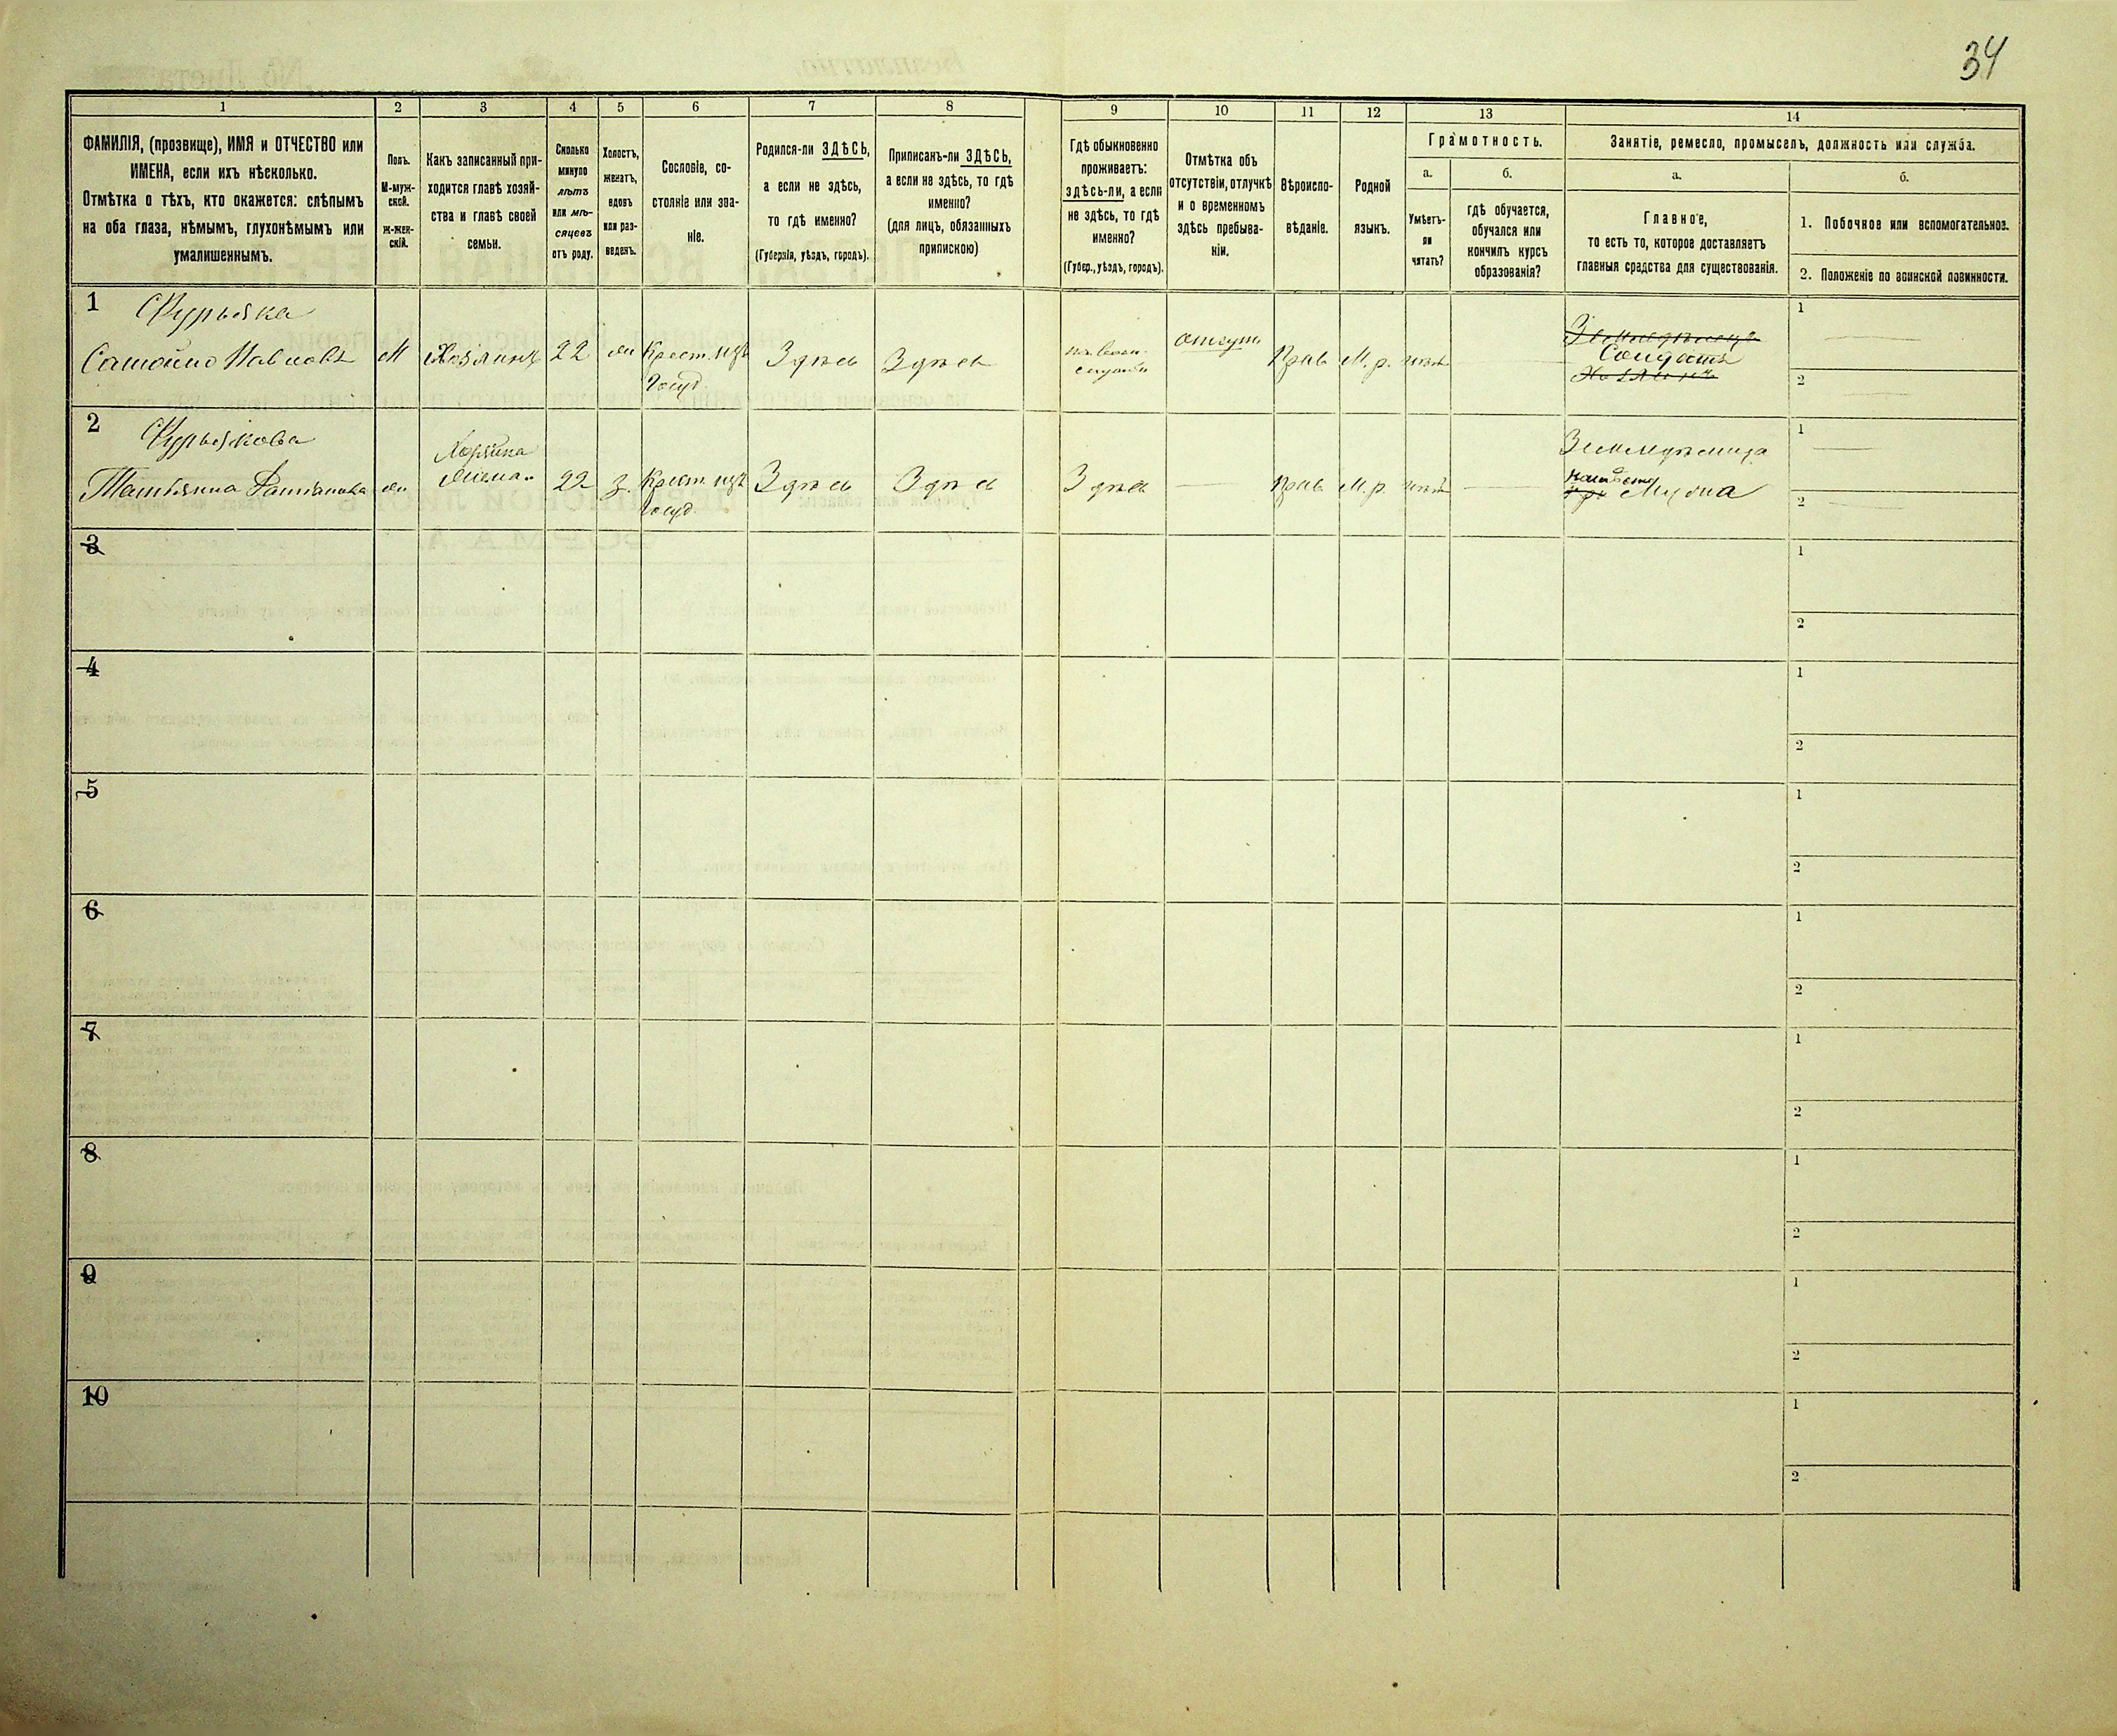 34
1
2
3
4
5
6
7
8
9
10
11
12
13
14
ФАМИЛІЯ, (прозвище), ИМЯ и ОТЧЕСТВО или
ИМЕНА, если ихъ нѣсколько.
Отмѣтка о тѣхъ, кто окажется: слѣпымъ
на оба глаза, нѣмымъ, глухонѣмымъ или
умалишеннымъ.
Полъ.
М-муж-
ской.
ж-жен-
скій.
Какъ записанный при-
ходится главѣ хозяй-
ства и главѣ своей
семьи.
Сколько
минуло
лѣтъ
или мѣ-
сяцевъ
отъ роду.
Холостъ,
женатъ,
вдовъ
или раз-
веденъ.
Сословіе, со-
стояніе или зва-
ніе.
Родился-ли ЗДѢСЬ,
а если не здѣсь,
то гдѣ именно?
(Губернія, уѣздъ, городъ).
Приписанъ-ли ЗДѢСЬ,
а если не здѣсь, то гдѣ
именно?
(для лицъ, обязанныхъ
припискою)
Гдѣ обыкновенно
проживаетъ:
здѣсь-ли, а если
не здѣсь, то гдѣ
именно?
(Губер., уѣздъ, городъ).
Отмѣтка объ
отсутствіи, отлучкѣ
и о временномъ
здѣсь пребыва-
ніи.
Вѣроиспо-
вѣданіе.
Родной
языкъ.
Грамотность.
а.
Умѣетъ-
ли
читать?
б.
гдѣ обучается,
обучался или
кончилъ курсъ
образованія?
Занятіе, ремесло, промыселъ, должность или служба.
а.
Главное,
то есть то, которое доставляетъ
главныя средства для существованія.
б.
1. Побочное или вспомогательное.
2. Положеніе по воинской повинности.
1
Самойло Павловъ
М
Хозяинъ
22
Крест. изъ
Госуд.
Здѣсь
Здѣсь
службѣ
отсут.
Прав.
М. р.
нѣтъ
Земледѣлецъ
Солдатъ
Хозяинъ
1
2
2
Татьянна
Хозяина
22
з.
Крест. изъ
Госуд.
Здѣсь
Здѣсь
Здѣсь
Прав.
М. р.
нѣтъ
1
2
3
1
2
4
1
2
5
1
2
6
1
2
7
1
2
8
1
2
9
1
2
10
1
2